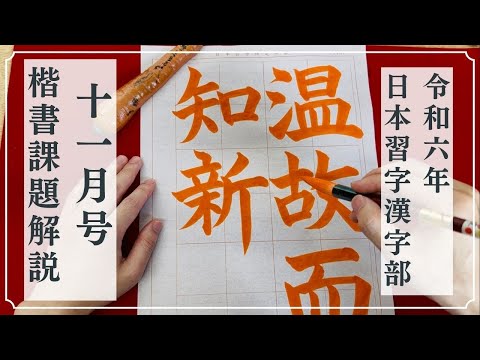 令和六年
日本習字漢字部
温故而
知新
十一月号
楷書課題解説